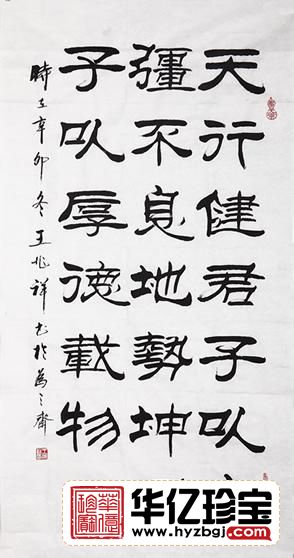 天行健君子以
彊不息地勢坤
子以厚德載物
時在辛卯冬王兆祥书於之齋
华亿珍宝
www.hyzbgj.com